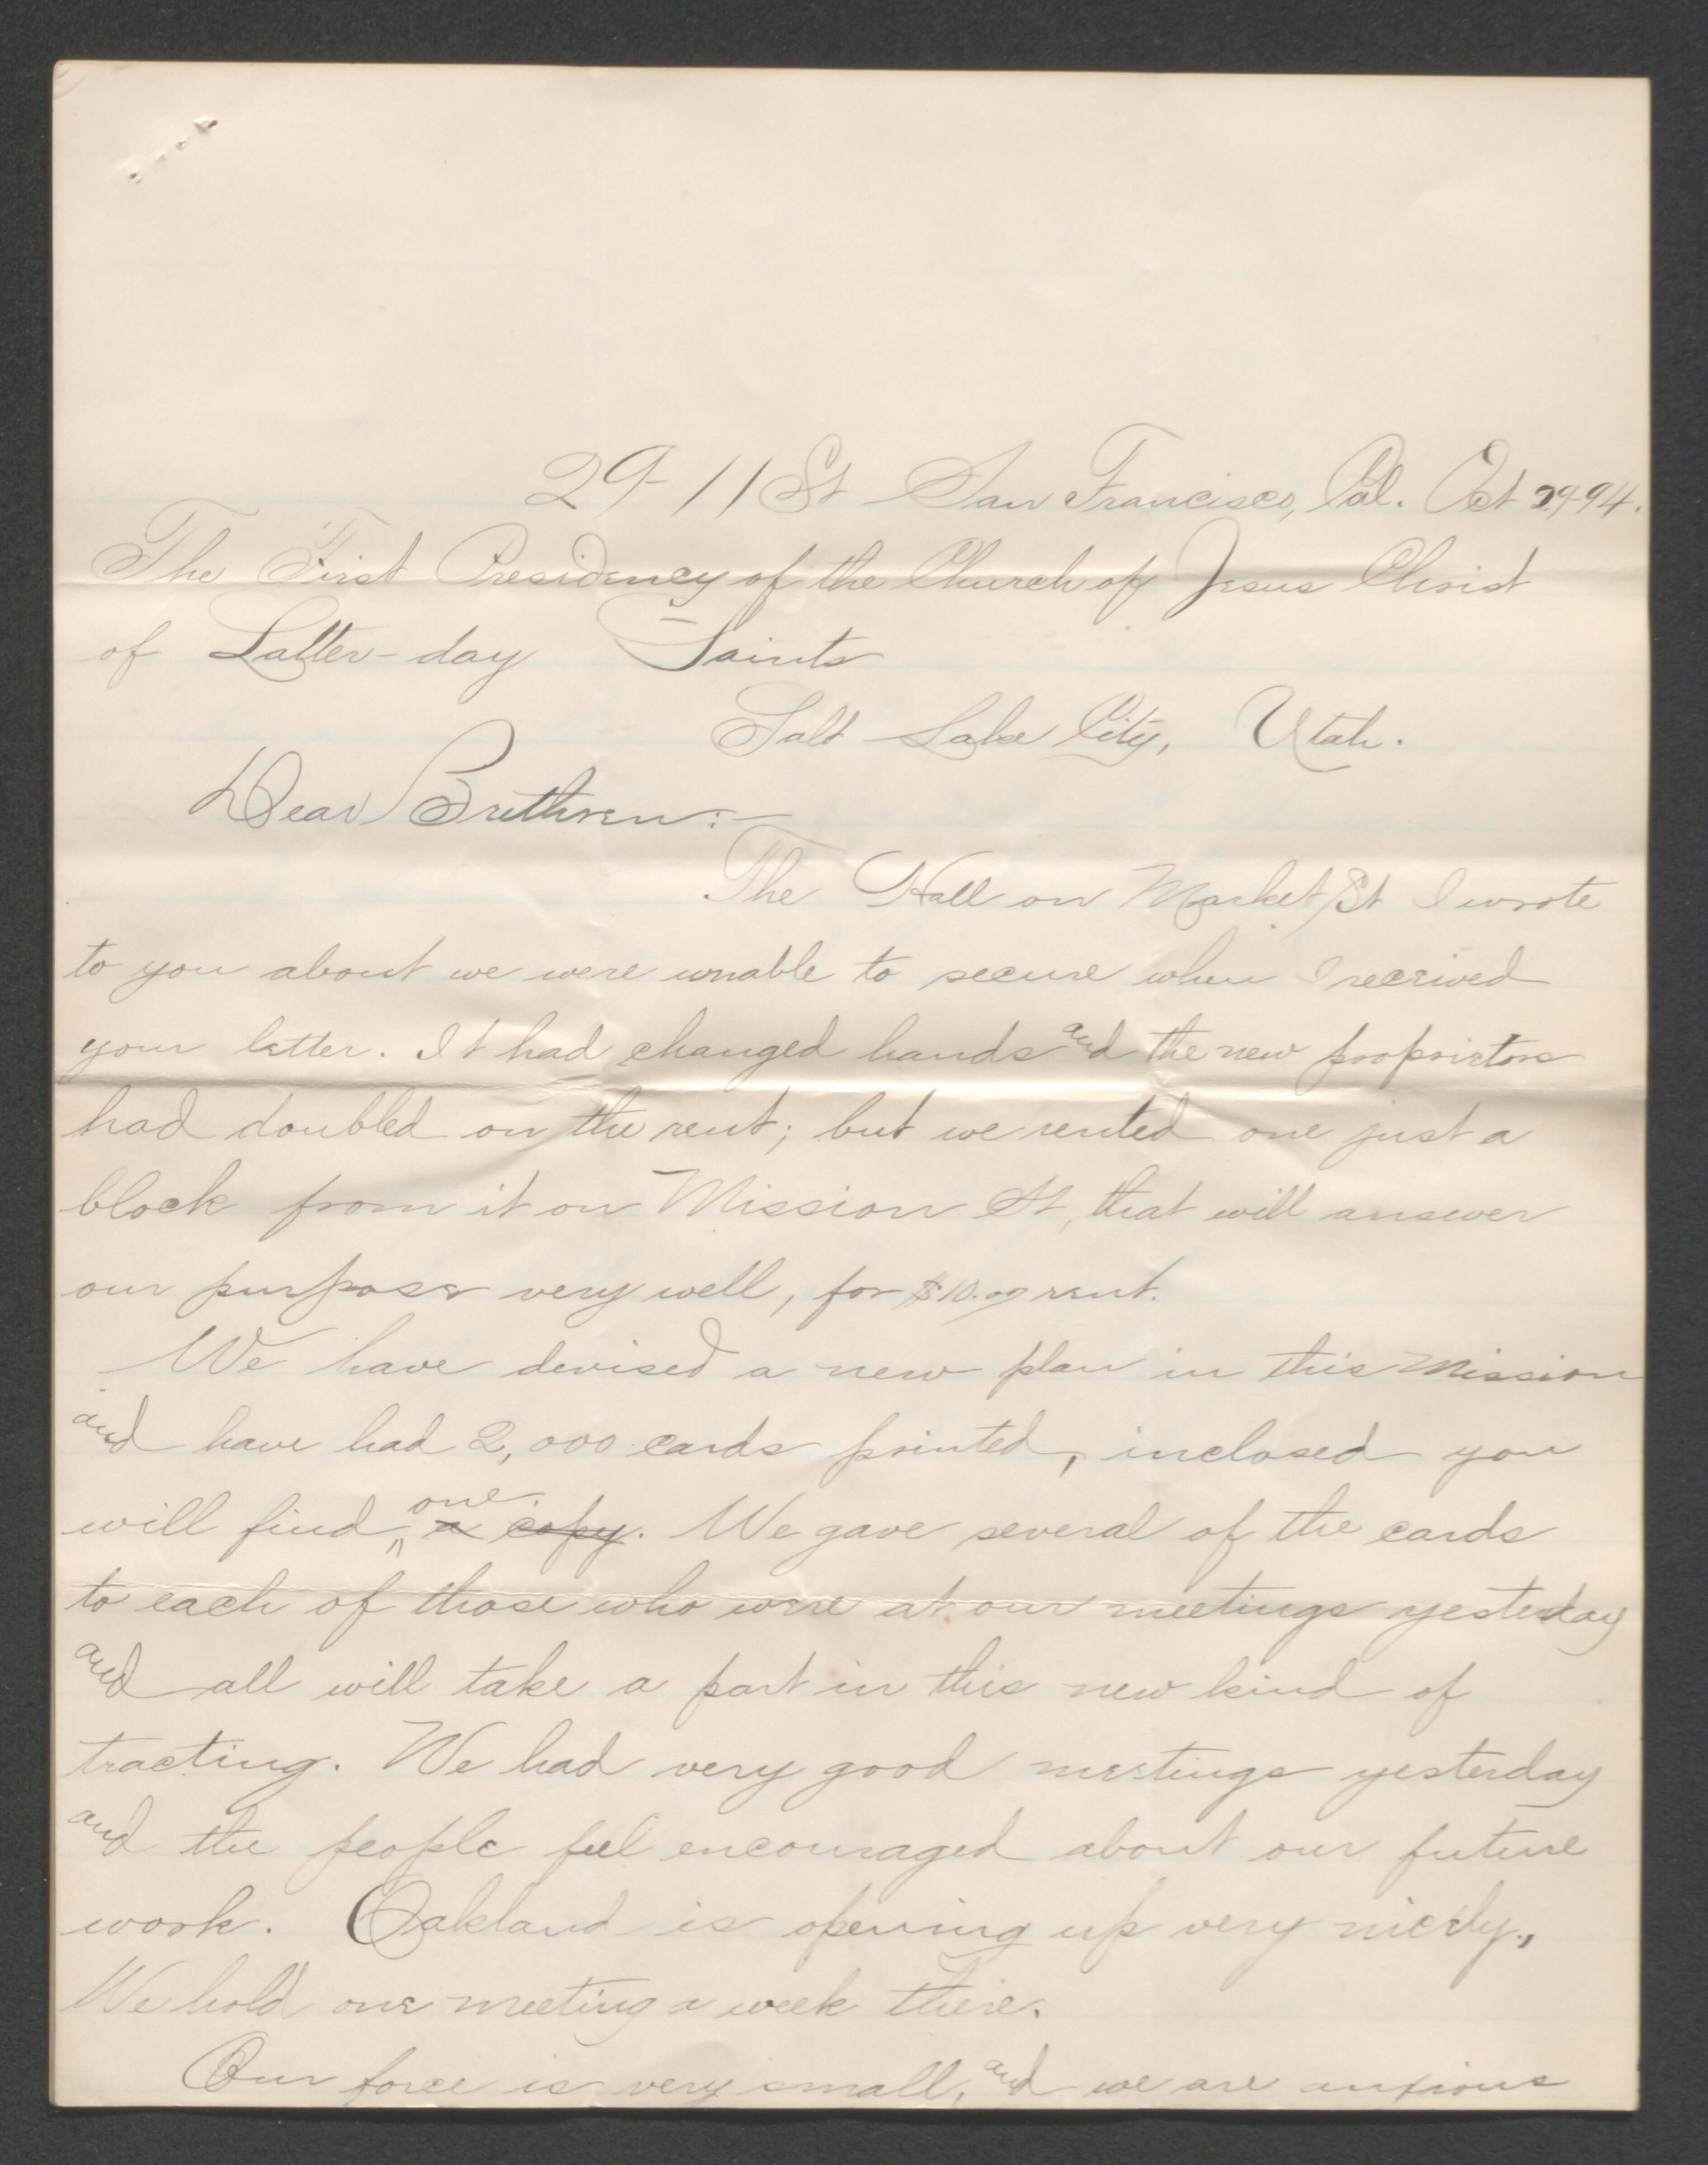 29-11 St San Francisco, Cal. Oct 29-94.
The First Presidency of the Church of Jesus Christ
of Latter-day Saints
Salt Lake City, Utah.
Dear Brethren:-
The Hall on Market St I wrote
to you about we were unable to secure when I received
your letter. It had changed hands and the new proprietors
had doubled on the rent; but we rented one just a
block from it on Mission St, that will answer
our purpose very well, for $10.00 rent.
We have devised a new plan in this Mission
and have had 2,000 cards printed, inclosed you
will find, one a copy. We gave several of the cards
to each of those who were at our meetings yesterday
and all will take a part in this new kind of
tracting. We had very good meetings yesterday
and the people feel encouraged about our future
work. Oakland is opening up very nicely.,
We hold one meeting a week there.
Our force is very small, and we are anxious